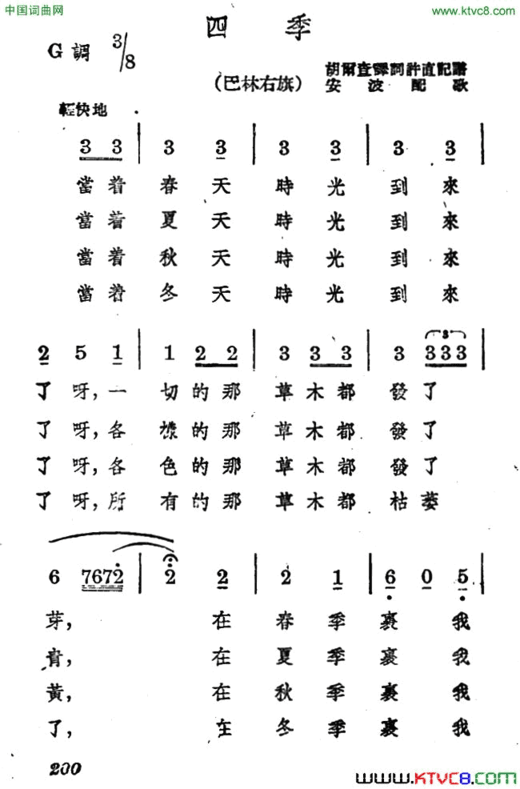 中国词曲网
www.ktvc8.com
四 季
G 調 3/8
(巴林右旗)
胡爾查譯詞許直記譜
安波配歌
輕快地
3 3 | 3 3 | 3 3 | 3 3 |
當着 春天 時光 到來
當着 夏天 時光 到來
當着 秋天 時光 到來
當着 冬天 時光 到來
2 5 1 | 1 2 2 | 3 3 3 | 3 3 3 3 |
了呀,一 切的那 草木都 發了
了呀,各 樣的那 草木都 發了
了呀,各 色的那 草木都 發了
了呀,所 有的那 草木都 枯萎
6 7672 | 2 2 | 2 1 | 6 0 5 |
芽, 在 春季 裏 我
青, 在 夏季 裏 我
黃, 在 秋季 裏 我
了, 在 冬季 裏 我
200
www.KTVC8.com